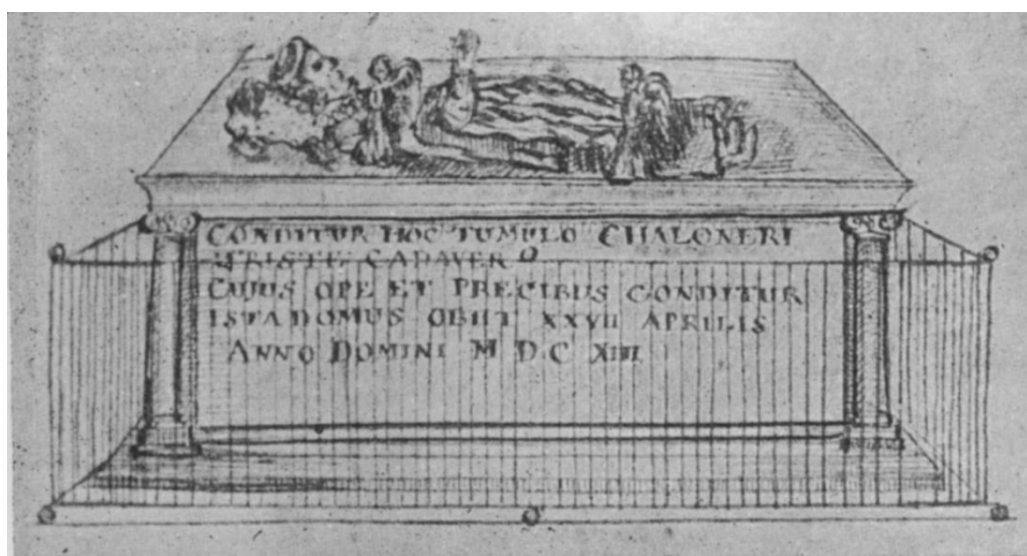 CONDITUR HOC TUMULO CHALONERI
TRISTE CADAVER
CUJUS OPE ET PRECIBUS CONDITUR
ISTA DOMUS OBIIT XXVII APRILIS
ANNO DOMINI M D C XIIII